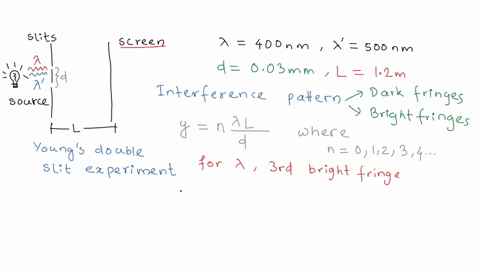 slits
screen
λ
λ'
d
source
L
Young's double
slit experiment
λ = 400nm , λ' = 500nm
d = 0.03mm , L = 1.2m
Interference pattern → Dark fringes
→ Bright fringes
y = n λL/d where
n = 0,1,2,3,4...
for λ , 3rd bright fringe